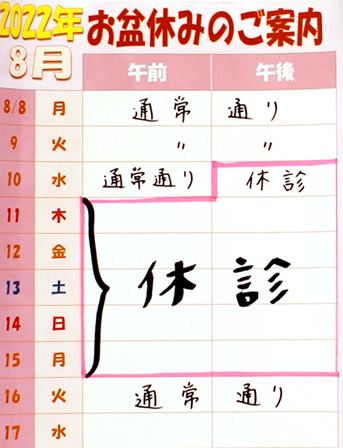 2022年お盆休みのご案内
8月 午前 午後
8/8 月 通常 通り
9 火 〃 〃
10 水 通常通り 休診
11 木
12 金
休診
13 土
14 日
15 月
16 火 通常 通り
17 水